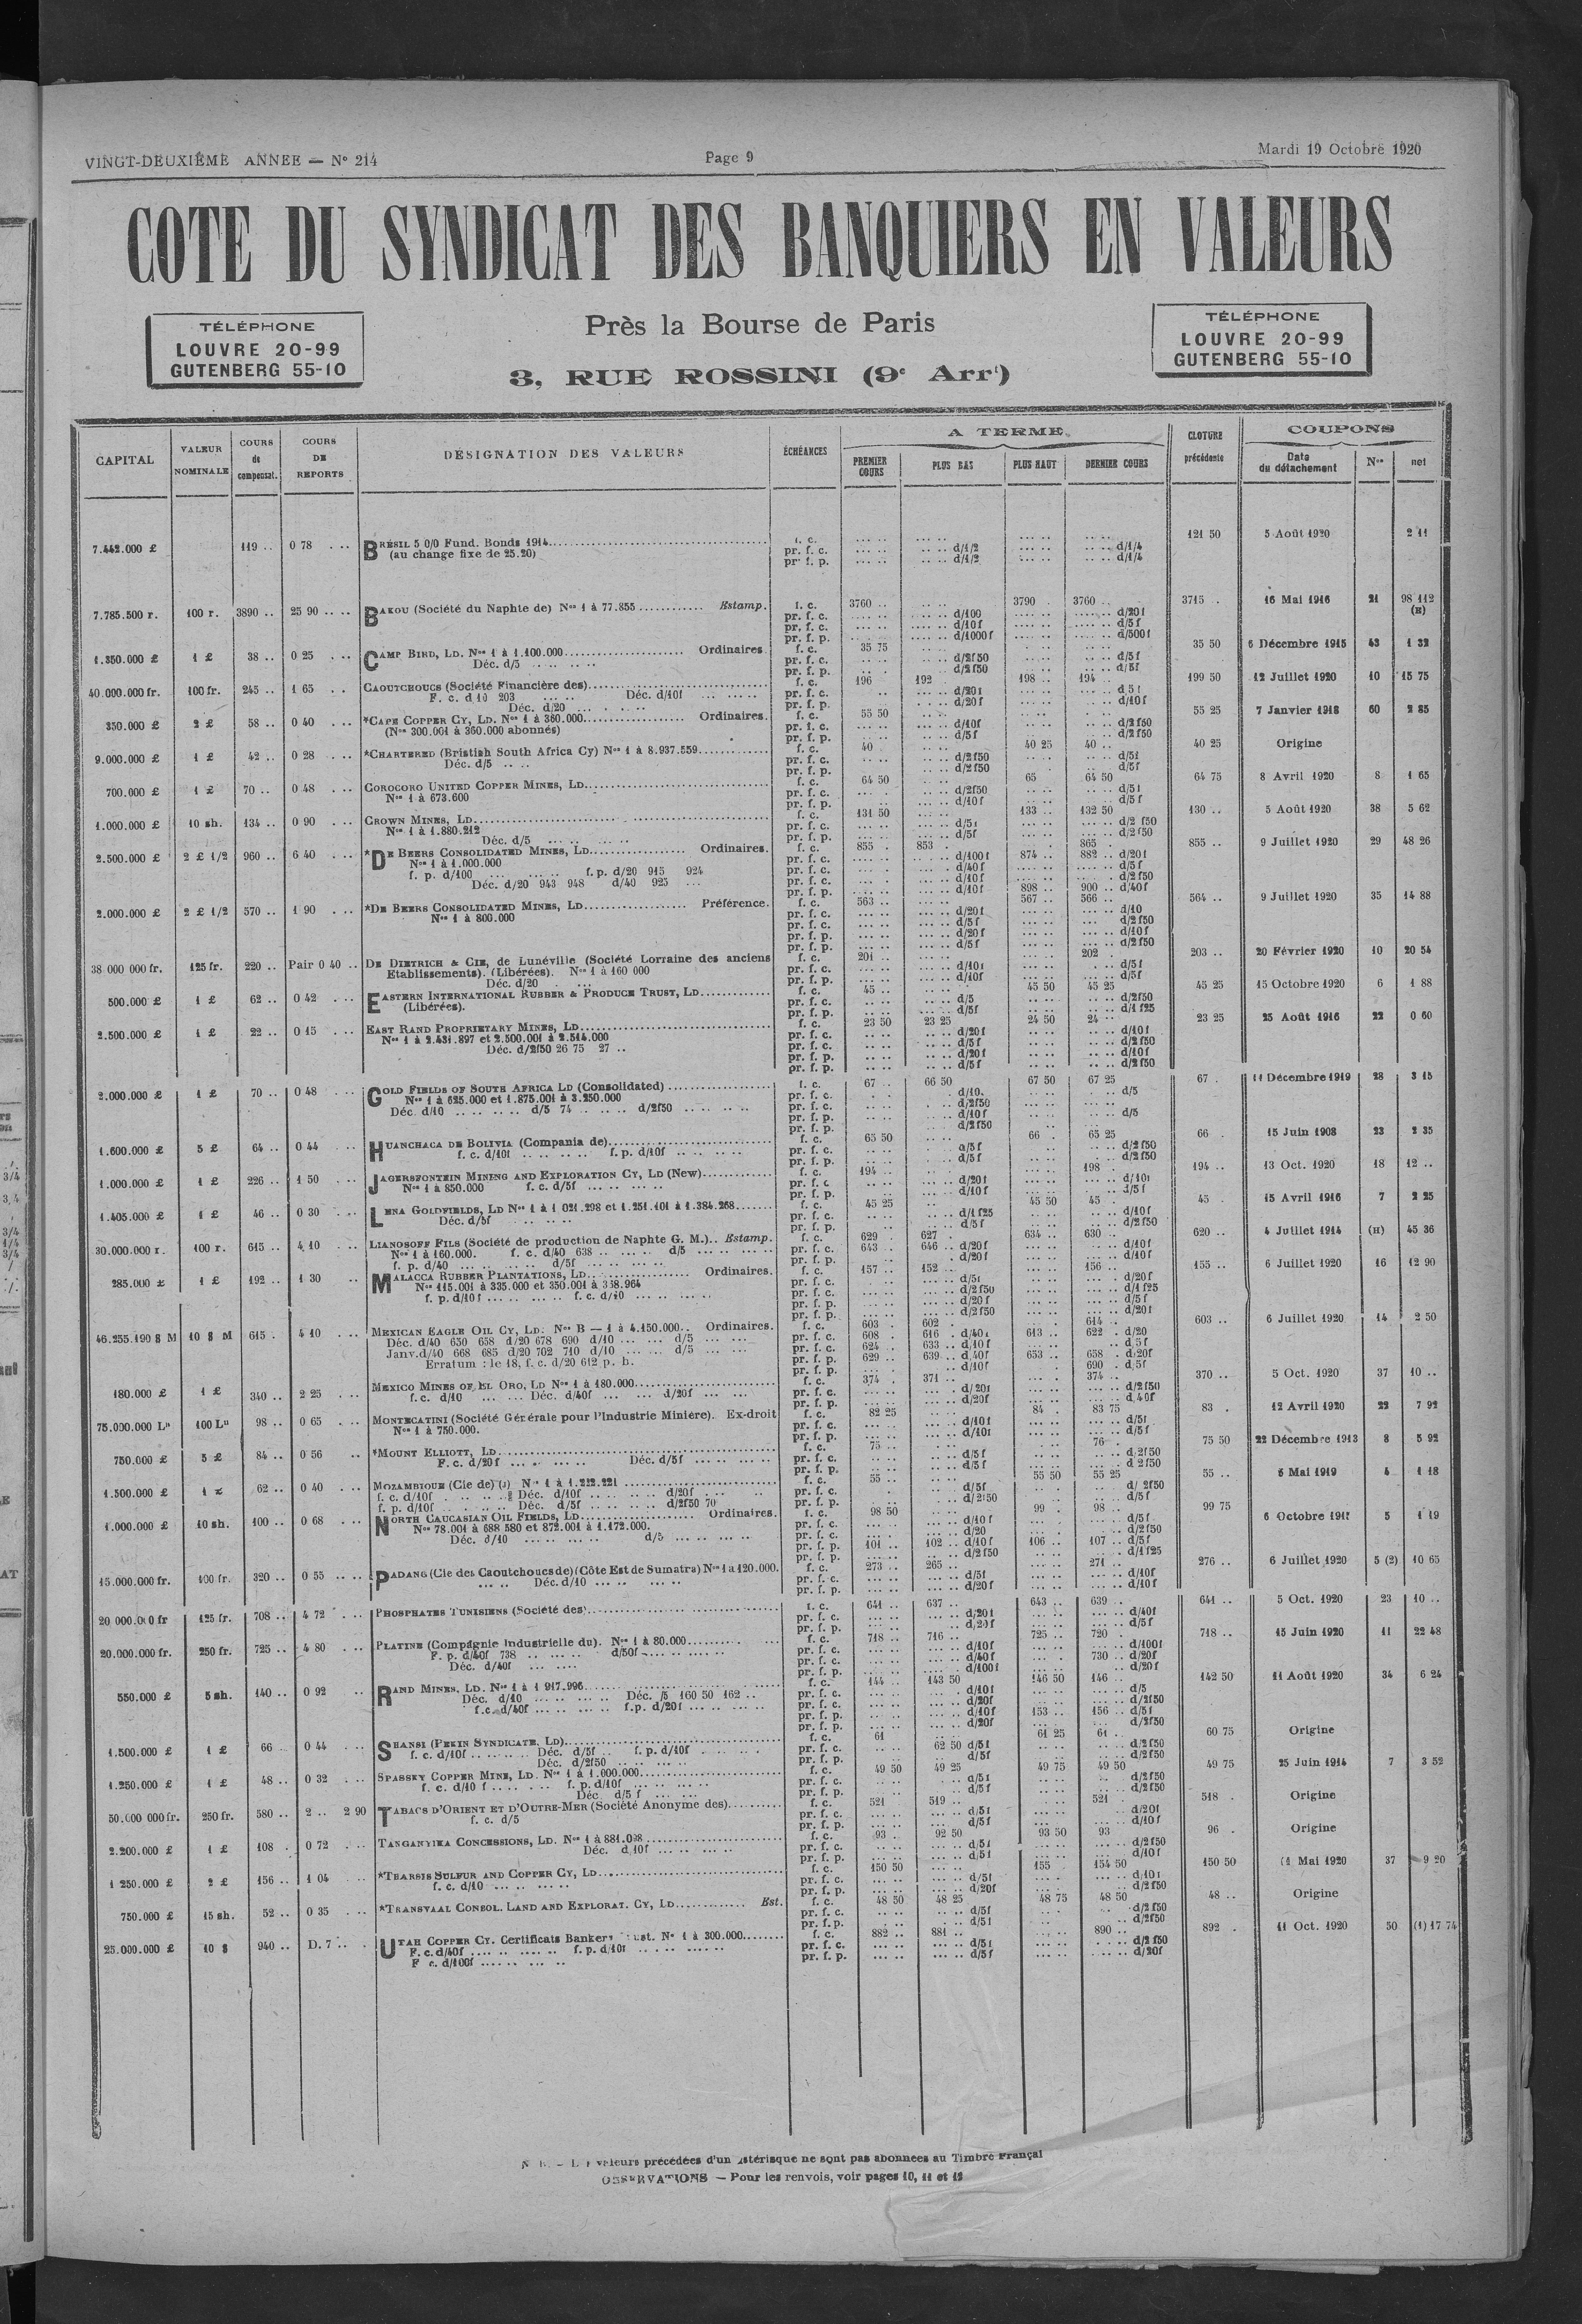 VINGT-DEUXIÈME ANNEE — N° 214 Page 9 Mardi 19 Octobre 1920
COTE DU SYNDICAT DES BANQUIERS EN VALEURS
TÉLÉPHONE
LOUVRE 20-99
GUTENBERG 55-10
Près la Bourse de Paris
3, RUE ROSSINI (9e Arrt)
TÉLÉPHONE
LOUVRE 20-99
GUTENBERG 55-10
CAPITAL VALEUR NOMINALE COURS de compensat. COURS DE REPORTS DÉSIGNATION DES VALEURS ÉCHÉANCES A TERME PREMIER COURS PLUS BAS PLUS HAUT DERNIER COURS CLOTURE précédente COUPONS Date du détachement Nos net
7.442.000 £ 119 .. 0 78 BRÉSIL 5 0/0 Fund. Bonds 1914 f. c. 121 50 5 Août 1920 2 11
(au change fixe de 25.20) pr. f. c. d/1/2 d/1/4
pr. f. p. d/1/2 d/1/4
7.785.500 r. 100 r. 3890 .. 25 90 BAKOU (Société du Naphte de) Nos 1 à 77.855 Estamp. f. c. 3760 .. 3790 . 3760 .. 3715 . 16 Mai 1916 21 98 112 (H)
pr. f. c. d/100 d/20f
pr. f. c. d/10f d/5f
pr. f. p. d/1000f d/500f
1.350.000 £ 1 £ 38 .. 0 25 CAMP BIRD, LD. Nos 1 à 1.100.000 Ordinaires. f. c. 35 75 35 50 6 Décembre 1915 43 1 32
Déc. d/5 pr. f. c. d/2f50 d/5f
pr. f. p. d/2f50 d/5f
40.000.000 fr. 100 fr. 245 .. 1 65 CAOUTCHOUCS (Société Financière des) f. c. 196 192 198 .. 194 .. 199 50 12 Juillet 1920 10 15 75
F. c. d 10 203 Déc. d/10f pr. f. c. d/20f d 5f
Déc. d/20 pr. f. p. d/20f d/10f
350.000 £ 2 £ 58 .. 0 40 *CAPE COPPER CY, LD. Nos 1 à 360.000 Ordinaires. f. c. 55 50 55 25 7 Janvier 1918 60 2 85
(Nos 300.001 à 360.000 abonnés) pr. f. c. d/10f d/2f50
pr. f. p. d/5f d/2f50
9.000.000 £ 1 £ 42 .. 0 28 *CHARTERED (Bristish South Africa Cy) Nos 1 à 8.937.559 f. c. 40 . 40 25 40 .. 40 25 Origine
Déc. d/5 pr. f. c. d/2f50 d/5f
pr. f. p. d/2f50 d/5f
700.000 £ 1 £ 70 .. 0 48 COROCORO UNITED COPPER MINES, LD f. c. 64 50 65 64 50 64 75 8 Avril 1920 8 1 65
Nos 1 à 673.600 pr. f. c. d/2f50 d/5f
pr. f. p. d/10f d/5f
1.000.000 £ 10 sh. 134 .. 0 90 CROWN MINES, LD f. c. 131 50 133 .. 132 50 130 .. 5 Août 1920 38 5 62
Nos 1 à 1.880.212 pr. f. c. d/5f d/2 f50
Déc. d/5 pr. f. p. d/5f d/2 f50
2.500.000 £ 2 £ 1/2 960 .. 6 40 *DE BEERS CONSOLIDATED MINES, LD Ordinaires. f. c. 855 . 853 . 865 . 855 .. 9 Juillet 1920 29 48 26
Nos 1 à 1.000.000 pr. f. c. d/100f 874 .. 882 .. d/20f
f. p. d/100 f. p. d/20 915 924 pr. f. c. d/40f d/5f
Déc. d/20 943 948 d/40 925 pr. f. c. d/10f d/2f50
pr. f. p. d/10f 898 .. 900 .. d/40f
2.000.000 £ 2 £ 1/2 570 .. 1 90 *DE BEERS CONSOLIDATED MINES, LD Préférence. f. c. 563 .. 567 .. 566 .. 564 .. 9 Juillet 1920 35 14 88
Nos 1 à 800.000 pr. f. c. d/20f d/10
pr. f. c. d/5f d/2f50
pr. f. p. d/20f d/10f
pr. f. p. d/5f d/2f50
38 000 000 fr. 125 fr. 220 .. Pair 0 40 DE DIETRICH & CIE, de Lunéville (Société Lorraine des anciens f. c. 201 .. 202 . 203 .. 20 Février 1920 10 20 54
Etablissements). (Libérées). Nos 1 à 160 000 pr. f. c. d/10f d/5f
Déc. d/20 pr. f. p. d/10f d/5f
500.000 £ 1 £ 62 .. 0 42 EASTERN INTERNATIONAL RUBBER & PRODUCE TRUST, LD f. c. 45 .. 45 50 45 25 45 25 15 Octobre 1920 6 1 88
(Libérées). pr. f. c. d/5 d/2f50
pr. f. p. d/5f d/1 f25
2.500.000 £ 1 £ 22 .. 0 15 EAST RAND PROPRIETARY MINES, LD f. c. 23 50 23 25 24 50 24 .. 23 25 25 Août 1916 22 0 60
Nos 1 à 2.431.897 et 2.500.001 à 2.514.000 pr. f. c. d/20f d/10f
Déc. d/2f50 26 75 27 .. pr. f. c. d/5f d/2f50
pr. f. p. d/20f d/10f
pr. f. p. d/5f d/2f50
2.000.000 £ 1 £ 70 .. 0 48 GOLD FIELDS OF SOUTH AFRICA LD (Consolidated) f. c. 67 .. 66 50 67 50 67 25 67 . 11 Décembre 1919 28 3 15
Nos 1 à 625.000 et 1.875.001 à 3.250.000 pr. f. c. d/10. d/5
Déc. d/10 d/5 74 d/2f50 pr. f. c. d/2f50
pr. f. p. d/10f d/5
pr. f. p. d/2f50
1.600.000 £ 5 £ 64 .. 0 44 HUANCHACA DE BOLIVIA (Compania de) f. c. 65 50 66 . 65 25 66 . 15 Juin 1908 23 2 35
f. c. d/10f f. p. d/10f pr. f. c. d/5f d/2f50
pr. f. p. d/5f d/2f50
1.000.000 £ 1 £ 226 .. 1 50 JAGERSFONTEIN MINING AND EXPLORATION CY, LD (New) f. c. 194 .. 198 . 194 .. 13 Oct. 1920 18 12 ..
Nos 1 à 850.000 f. c. d/5f pr. f. c d/20f d/10f
pr. f. p. d/10f d/5f
1.405.000 £ 1 £ 46 .. 0 30 LENA GOLDFIELDS, LD Nos 1 à 1 021.298 et 1.251.101 à 1.384.268 f. c. 45 25 45 50 45 . 45 . 15 Avril 1916 7 2 25
Déc. d/5f pr. f. c. d/1 f25 d/10f
pr. f. p. d/5f d/2f50
30.000.000 r. 100 r. 615 .. 4 10 LIANOSOFF FILS (Société de production de Naphte G. M.) Estamp. f. c. 629 627 . 634 .. 630 .. 620 .. 4 Juillet 1914 (H) 45 36
Nos 1 à 160.000. f. c. d/40 638 d/5 pr. f. c. 643 . 646 .. d/20f d/10f
f. p. d/40 d/5f pr. f. p. d/20f d/10f
285.000 £ 1 £ 192 .. 1 30 MALACCA RUBBER PLANTATIONS, LD Ordinaires. f. c. 157 .. 152 .. 156 .. 155 .. 6 Juillet 1920 16 12 90
Nos 115.001 à 335.000 et 350.001 à 358.964 pr. f. c. d/5f d/20f
f. p. d/10f f. c. d/10 pr. f. c. d/2f50 d/1 f25
pr. f. p. d/20f d/5f
pr. f. p. d/2f50 d/20f
46.255.190 $ M 10 $ M 615 . 4 10 MEXICAN EAGLE OIL CY, LD. Nos B — 1 à 4.150.000 Ordinaires. f. c. 603 . 602 . 614 .. 603 .. 6 Juillet 1920 14 2 50
Déc. d/40 650 658 d/20 678 690 d/10 d/5 pr. f. c. 608 . 616 . d/40f 613 .. 622 . d/20
Janv.d/40 668 685 d/20 702 710 d/10 d/5 pr. f. c. 624 . 633 .. d/10f d 5f
Erratum : le 18, f. c. d/20 612 p. h. pr. f. p. 629 .. 639 .. d.40f 653 .. 658 . d/20f
pr. f. p. d/10f 690 . d.5f
180.000 £ 1 £ 340 .. 2 25 MEXICO MINES OF EL ORO, LD Nos 1 à 180.000 f. c. 374 . 371 .. 374 .. 370 .. 5 Oct. 1920 37 10 ..
f. c. d/10 Déc. d/40f d/20f pr. f. c. d/20f d/2f50
pr. f. p. d/20f d.40f
75.000.000 Ls 100 Ls 98 .. 0 65 MONTECATINI (Société Générale pour l'Industrie Minière). Ex-droit f. c. 82 25 84 . 83 75 83 . 12 Avril 1920 22 7 92
Nos 1 à 750.000. pr. f. c. d/10f d/5f
pr. f. p. d/10f d/5f
750.000 £ 5 £ 84 .. 0 56 *MOUNT ELLIOTT, LD f. c. 75 .. 76 . 75 50 22 Décembre 1913 8 5 92
F. c. d/20f Déc. d/5f pr. f. c. d/5f d/2f50
pr. f. p. d/5f d 2f50
1.500.000 £ 62 .. 0 40 MOZAMBIQUE (Cie de) Nos 1 à 1.222.221 f. c. 55 .. 55 50 55 25 55 .. 5 Mai 1919 4 1 18
f. c. d/10f Déc. d/10f d/20f pr. f. c. d/5f d/2f50
f. p. d/10f Déc. d/5f d/2f50 70 pr. f. p. d/2f50 d/5f
1.000.000 £ 10 sh. 100 .. 0 68 NORTH CAUCASIAN OIL FIELDS, LD Ordinaires. f. c. 98 50 99 . 98 .. 99 75 6 Octobre 5 1 19
Nos 78.001 à 688 580 et 872.001 à 1.172.000. pr. f. c. d/10f d/5f
Déc. d/10 d/5 pr. f. c. d/20 d/2f50
pr. f. p. 101 .. 102 .. d/10f 106 .. 107 .. d/5f
pr. f. p. d/2f50 d/1f25
15.000.000 fr. 100 fr. 320 .. 0 55 PADANG (Cie des Caoutchoucs de) (Côte Est de Sumatra) Nos 1 à 120.000. f. c. 273 .. 265 .. 271 .. 276 .. 6 Juillet 1920 5 (2) 10 65
Déc. d/10 pr. f. c. d/5f d/10f
pr. f. p. d/20f d/10f
20 000.000 fr 125 fr. 708 .. 4 72 PHOSPHATES TUNISIENS (Société des) f. c. 641 .. 637 .. 643 .. 639 .. 641 .. 5 Oct. 1920 23 10 ..
pr. f. c. d/20f d/40f
pr. f. p. d,20f d/5f
20.000.000 fr. 250 fr. 725 .. 4 80 PLATINE (Compagnie Industrielle du). Nos 1 à 80.000 f. c. 718 .. 716 .. 725 .. 720 . 718 .. 15 Juin 1920 11 22 48
F. p. d/40f 738 d/50f pr. f. c. d/10f d/100f
Déc. d/40f pr. f. c. d/40f 730 .. d/20f
pr. f. p. d/100f d/20f
550.000 £ 5 sh. 140 .. 0 92 RAND MINES, LD. Nos 1 à 1 917.996 f. c. 144 .. 143 50 146 50 146 .. 142 50 11 Août 1920 34 6 24
Déc. d/10 Déc. /5 160 50 162 .. pr. f. c. d/10f d/5
f.c. d/40f f.p. d/20f pr. f. c. d/20f d/2f50
pr. f. p. d/10f 153 .. 156 .. d/5f
pr. f. p. d/20f d/2f50
1.500.000 £ 1 £ 66 0 44 SHANSI (PEKIN SYNDICATE, LD) f. c. 61 61 25 61 . 60 75 Origine
f. c. d/10f Déc. d/5f f. p. d/10f pr. f. c. 62 50 d/5f d/2f50
Déc. d/2f50 pr. f. p. d/5f d/2f50
1.250.000 £ 1 £ 48 .. 0 32 SPASSKY COPPER MINE, LD. Nos 1 à 1.000.000 f. c. 49 50 49 25 49 75 49 50 49 75 25 Juin 1914 7 3 52
f. c. d/10 f f. p. d/10f pr. f. c. d/5f d/2f50
Déc. d/5 f pr. f. p. d/5f d/2f50
50.000 000 fr. 250 fr. 580 .. 2 .. 2 90 TABACS D'ORIENT ET D'OUTRE-MER (Société Anonyme des) f. c. 521 519 .. 521 . 518 . Origine
f. c. d/5 pr. f. c. d/5f d/20f
pr. f. p. d/5f d/10f
2.200.000 £ 1 £ 108 . 0 72 TANGANYIKA CONCESSIONS, LD. Nos 1 à 881.098 f. c. 93 . 92 50 93 50 93 96 . Origine
Déc. d 10f pr. f. c. d/5f d/2f50
pr. f. p. d/5f d/10f
1 250.000 £ 2 £ 156 .. 1 04 *THARSIS SULFUR AND COPPER CY, LD f. c. 150 50 155 . 154 50 150 50 Mai 1920 37 9 20
f. c. d/10 pr. f. c. d/5f d/10f
pr. f. p. d/20f d/2f50
750.000 £ 15 sh. 52 .. 0 35 *TRANSVAAL CONSOL. LAND AND EXPLORAT. CY, LD Est. f. c. 48 50 48 25 48 75 48 50 48 .. Origine
pr. f. c. d/5f d/2 f50
pr. f. p. d/5f d/2f50
25.000.000 £ 10 $ 940 .. D. 7 .. UTAH COPPER CY. Certificats Bankers Nos 1 à 300.000 f. c. 882 .. 881 .. 890 .. 892 . 11 Oct. 1920 50 (1) 17 74
F. c. d/40f f. p. d/10f pr. f. c. d/5f d/2 f50
F c. d/100f pr. f. p. d/5f d/20f
valeurs précédées d'un astérisque ne sont pas abonnées au Timbre Françai
OBSERVATIONS — Pour les renvois, voir pages 10, 11 et 12